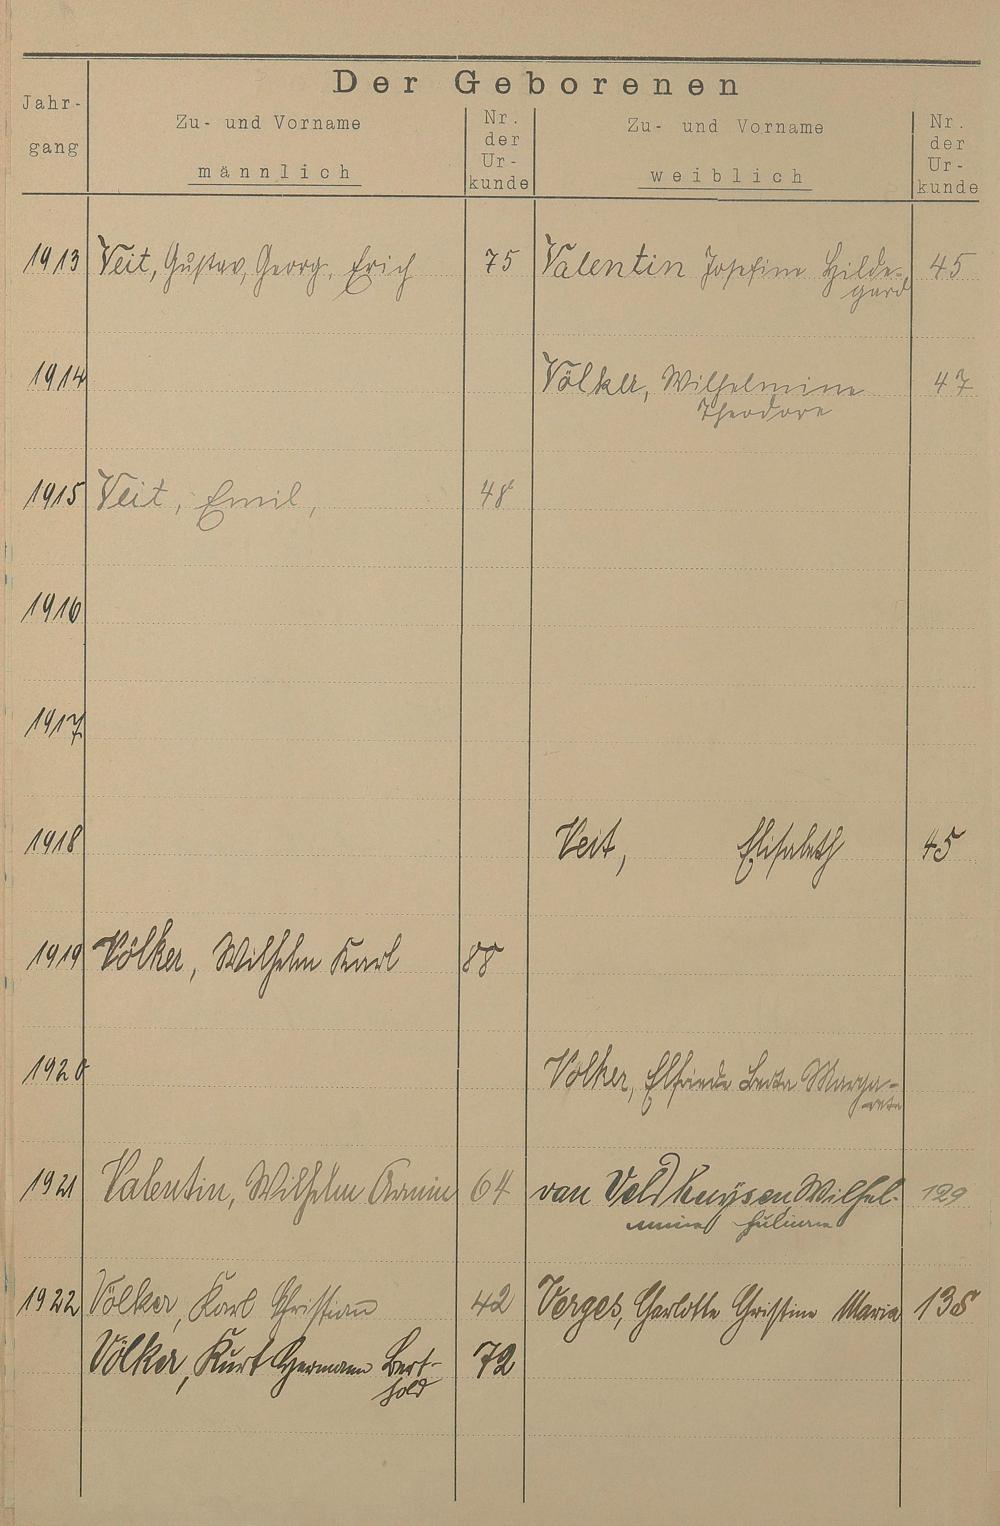 Der Geborenen
Jahr-
gang
Zu- und Vorname
männlich
Nr.
der
Ur-
kunde
Zu- und Vorname
weiblich
Nr.
der
Ur-
kunde
1913 Veit, Gustav, Georg, Erich 75 Valentin Josefine Hilde- 45
gard
1914 Völker, Wilhelmine 47
Theodore
1915 Veit, Emil, 48
1916
1917
1918 Veit, Elisabeth 45
1919 Völker, Wilhelm Karl 88
1920 Völker, Elfriede Berta Marga-
reta
1921 Valentin, Wilhelm Armin 64 van Veldhuysen, Wilhel- 129
mina Juliana
1922 Völker, Karl Christian 42 Verges, Charlotte Christine Maria 138
Völker, Kurt Hermann Bert- 72
hold